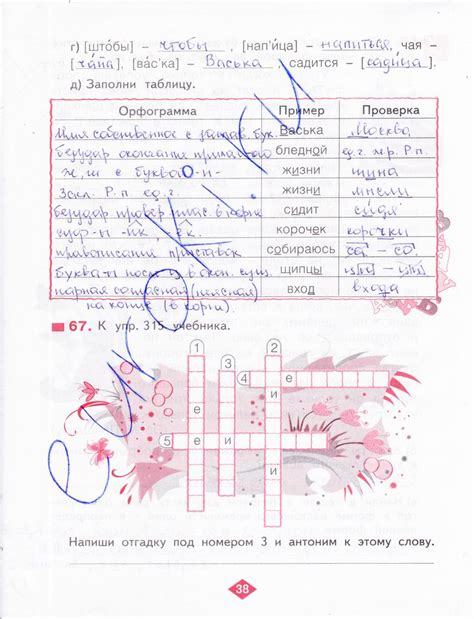 г) [што́бы] – чтобы, [нап'и́ца] – напиться, чая –
[ча́йа], [ва́с'ка] – Васька, садится – [садица].
д) Заполни таблицу.
Орфограмма Пример Проверка
Имя собственное с заглав. бук. Васька Москва
безудар окончания бледной ед.ч. жр. Р.п.
ж, ш с буквой и жизни шина
3скл. Р.п. ед.ч. жизни
безудар провер глас. в корне сидит сидя
суф-ы -ик, -ек корочек корочки
правописание приставок собираюсь са – со
Буква ы после ц в окон. сущ. щипцы
парная согласная (неясная) вход входа
на конце (в корни)
67. К упр. 315 учебника.
1 2
3
4
е и
5 е и
е
Напиши отгадку под номером 3 и антоним к этому слову.
38